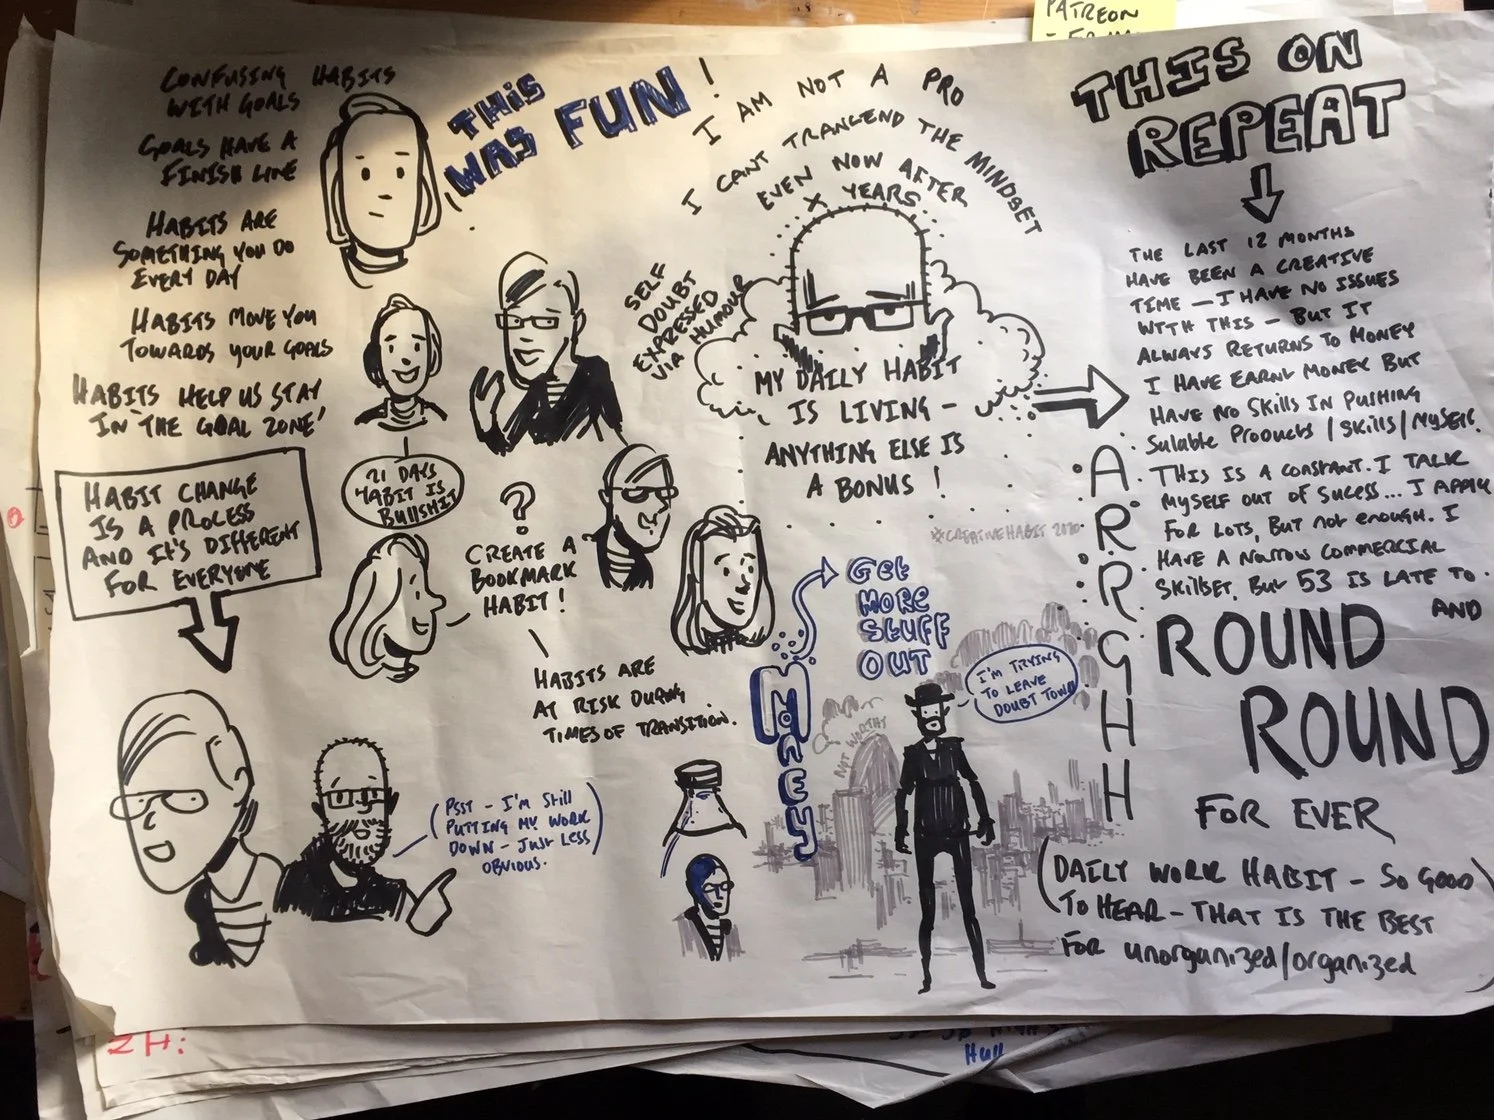 PATREON
CONFUSING HABITS
WITH GOALS
GOALS HAVE A
FINISH LINE
HABITS ARE
SOMETHING YOU DO
EVERY DAY
HABITS MOVE YOU
TOWARDS YOUR GOALS
HABITS HELP US STAY
IN 'THE GOAL ZONE'
HABIT CHANGE
IS A PROCESS
AND IT'S DIFFERENT
FOR EVERYONE
THIS
WAS FUN!
21 DAYS
HABIT IS
BULLSHIT
?
CREATE A
BOOKMARK
HABIT!
HABITS ARE
AT RISK DURING
TIMES OF TRANSITION.
(PSST - I'M STILL
PUTTING MY WORK
DOWN - JUST LESS
OBVIOUS.)
I AM NOT A PRO
I CANT TRANCEND THE MINDSET
EVEN NOW AFTER
X YEARS
SELF
DOUBT
EXPRESSED
VIA HUMOUR
MY DAILY HABIT
IS LIVING -
ANYTHING ELSE IS
A BONUS!
#CREATIVEHABIT 2020
MONEY
GET
MORE
STUFF
OUT
I'M TRYING
TO LEAVE
DOUBT TOWN
NOT WORTHY
ARRGHH
THIS ON
REPEAT
THE LAST 12 MONTHS
HAVE BEEN A CREATIVE
TIME - I HAVE NO ISSUES
WITH THIS - BUT IT
ALWAYS RETURNS TO MONEY
I HAVE EARNT MONEY BUT
HAVE NO SKILLS IN PUSHING
SALABLE PRODUCTS / SKILLS / MYSELF.
THIS IS A CONSTANT. I TALK
MYSELF OUT OF SUCESS... I APPLY
FOR LOTS, BUT NOT ENOUGH. I
HAVE A NARROW COMMERCIAL
SKILLSET, BUT 53 IS LATE TO.
AND
ROUND
ROUND
FOR EVER
(DAILY WORK HABIT - SO GOOD
TO HEAR - THAT IS THE BEST
FOR UNORGANIZED/ORGANIZED)
ZH:
Hull